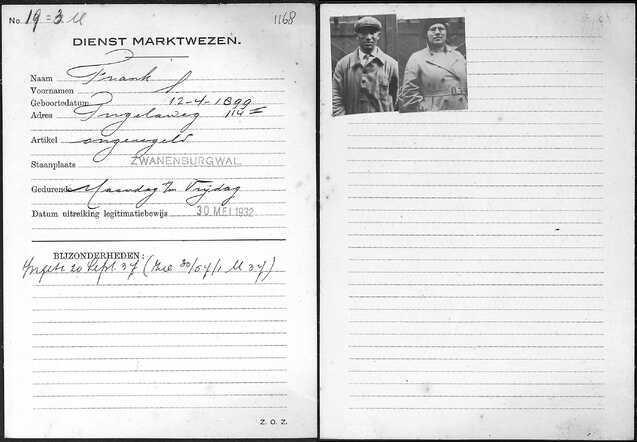 No. 19=3 M 1168
DIENST MARKTWEZEN.
Naam Frank
Voornamen S
Geboortedatum 12-4-1899
Adres 114 I
Artikel ongeregeld
Staanplaats ZWANENBURGWAL.
Gedurende Maandag t/m Vrijdag
Datum uitreiking legitimatiebewijs 30 MEI 1932
BIJZONDERHEDEN:
Ingetr. 20 Sept. 37 (Zie 30/04/1 M 37)
Z. O. Z.